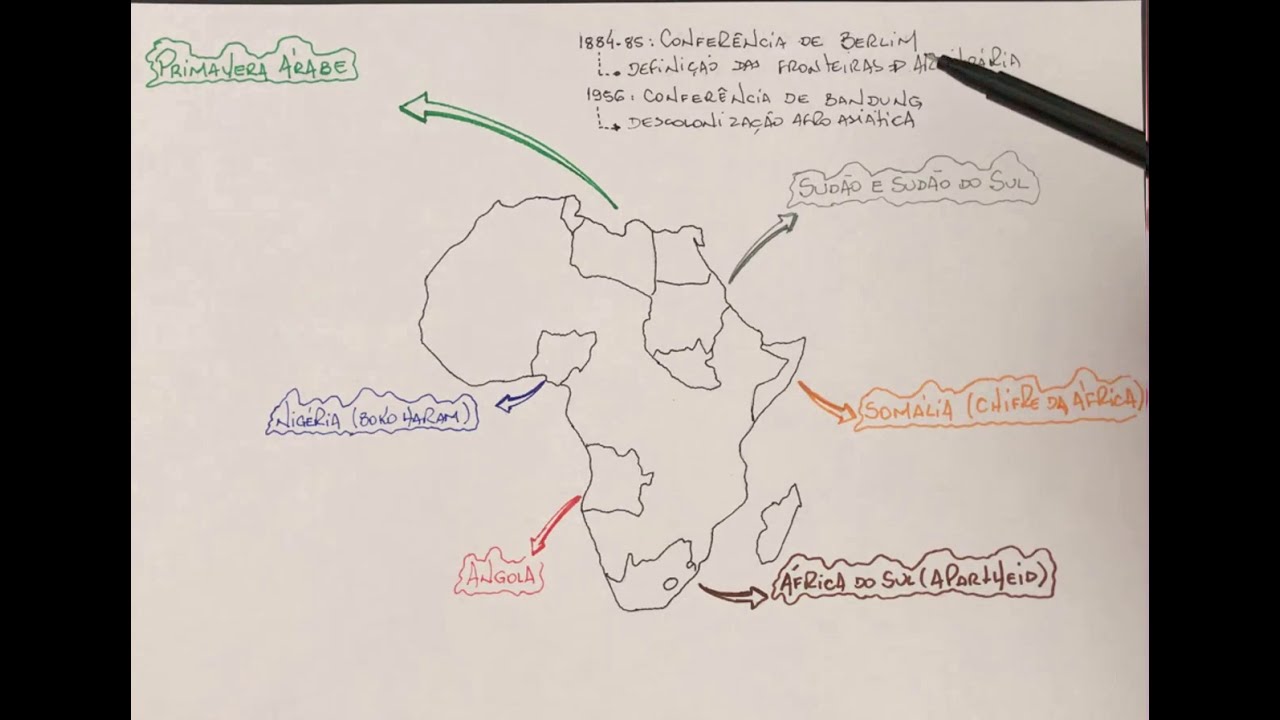 PRIMAVERA ÁRABE
1884-85: CONFERÊNCIA DE BERLIM
DEFINIÇÃO DAS FRONTEIRAS
1956: CONFERÊNCIA DE BANDUNG
DESCOLONIZAÇÃO AFRO ASIÁTICA
SUDÃO E SUDÃO DO SUL
NIGÉRIA (BOKO HARAM)
SOMÁLIA (CHIFRE DA ÁFRICA)
ANGOLA
ÁFRICA DO SUL (APARTHEID)